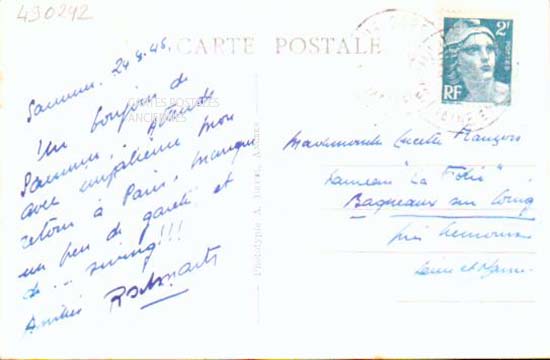 490242
CARTE POSTALE
2F
POSTES
RF
Saumur, 24.8.46.
Un bonjour de
Saumur. Attends
avec impatience mon
retour à Paris, manque
un peu de gaieté et
de ... swing!!!
Amitiés
CARTES POSTALES
ANCIENNES
Mademoiselle Lucette François
Hameau "La Folie"
Bagneaux sur Loing
près Nemours
Seine et Marne
Phototypie A.